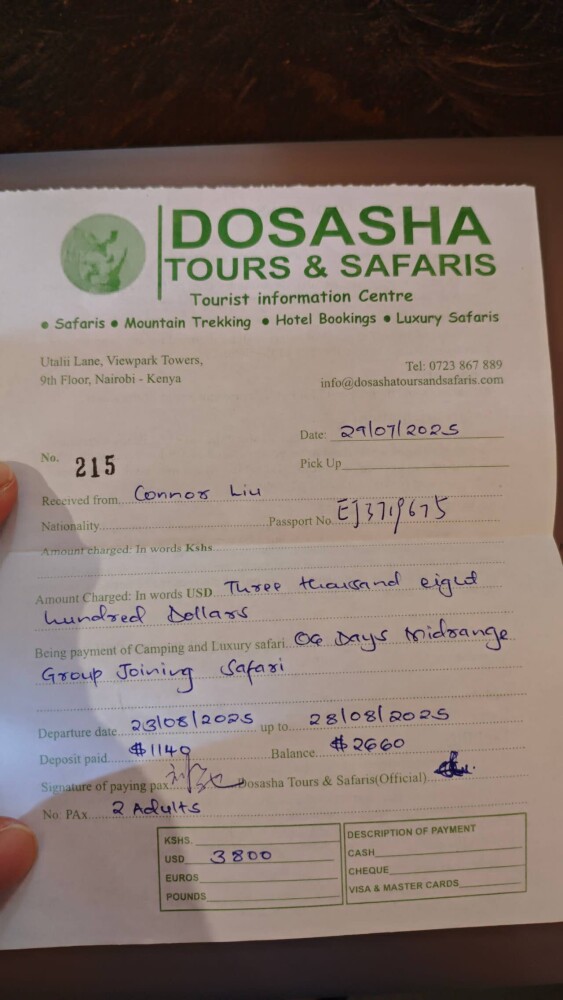 DOSASHA
TOURS & SAFARIS
Tourist information Centre
• Safaris • Mountain Trekking • Hotel Bookings • Luxury Safaris
Utalii Lane, Viewpark Towers,
9th Floor, Nairobi - Kenya
Tel: 0723 867 889
info@dosashatoursandsafaris.com
Date: 29/07/2025
No. 215
Pick Up
Received from Connor Liu
Nationality Passport No. EJ3719675
Amount charged: In words Kshs
Amount Charged: In words USD Three thousand eight
hundred Dollars
Being payment of Camping and Luxury safari 06 Days Midrange
Group Joining Safari
Departure date 23/08/2025 up to 28/08/2025
Deposit paid $1140 Balance $2660
Signature of paying pax Dosasha Tours & Safaris(Official)
No: PAx 2 Adults
KSHS.
USD 3800
EUROS
POUNDS
DESCRIPTION OF PAYMENT
CASH
CHEQUE
VISA & MASTER CARDS